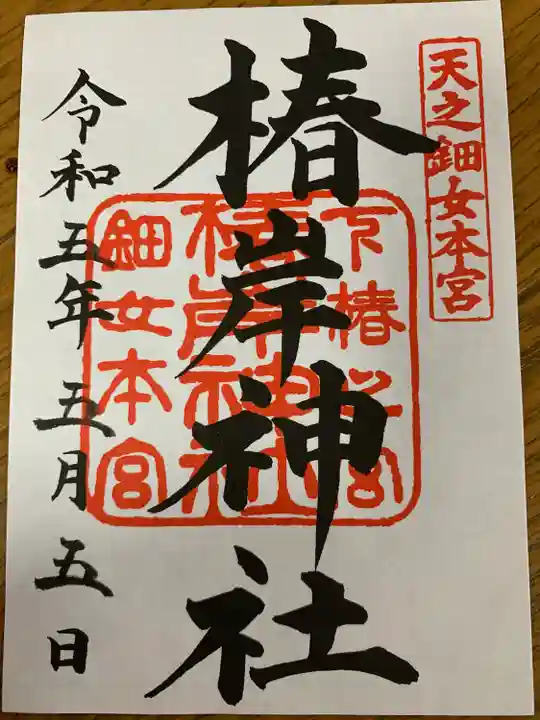 天之鈿女本宮
椿岸神社
下椿之宮
椿岸神社
鈿女本宮
令和五年五月五日